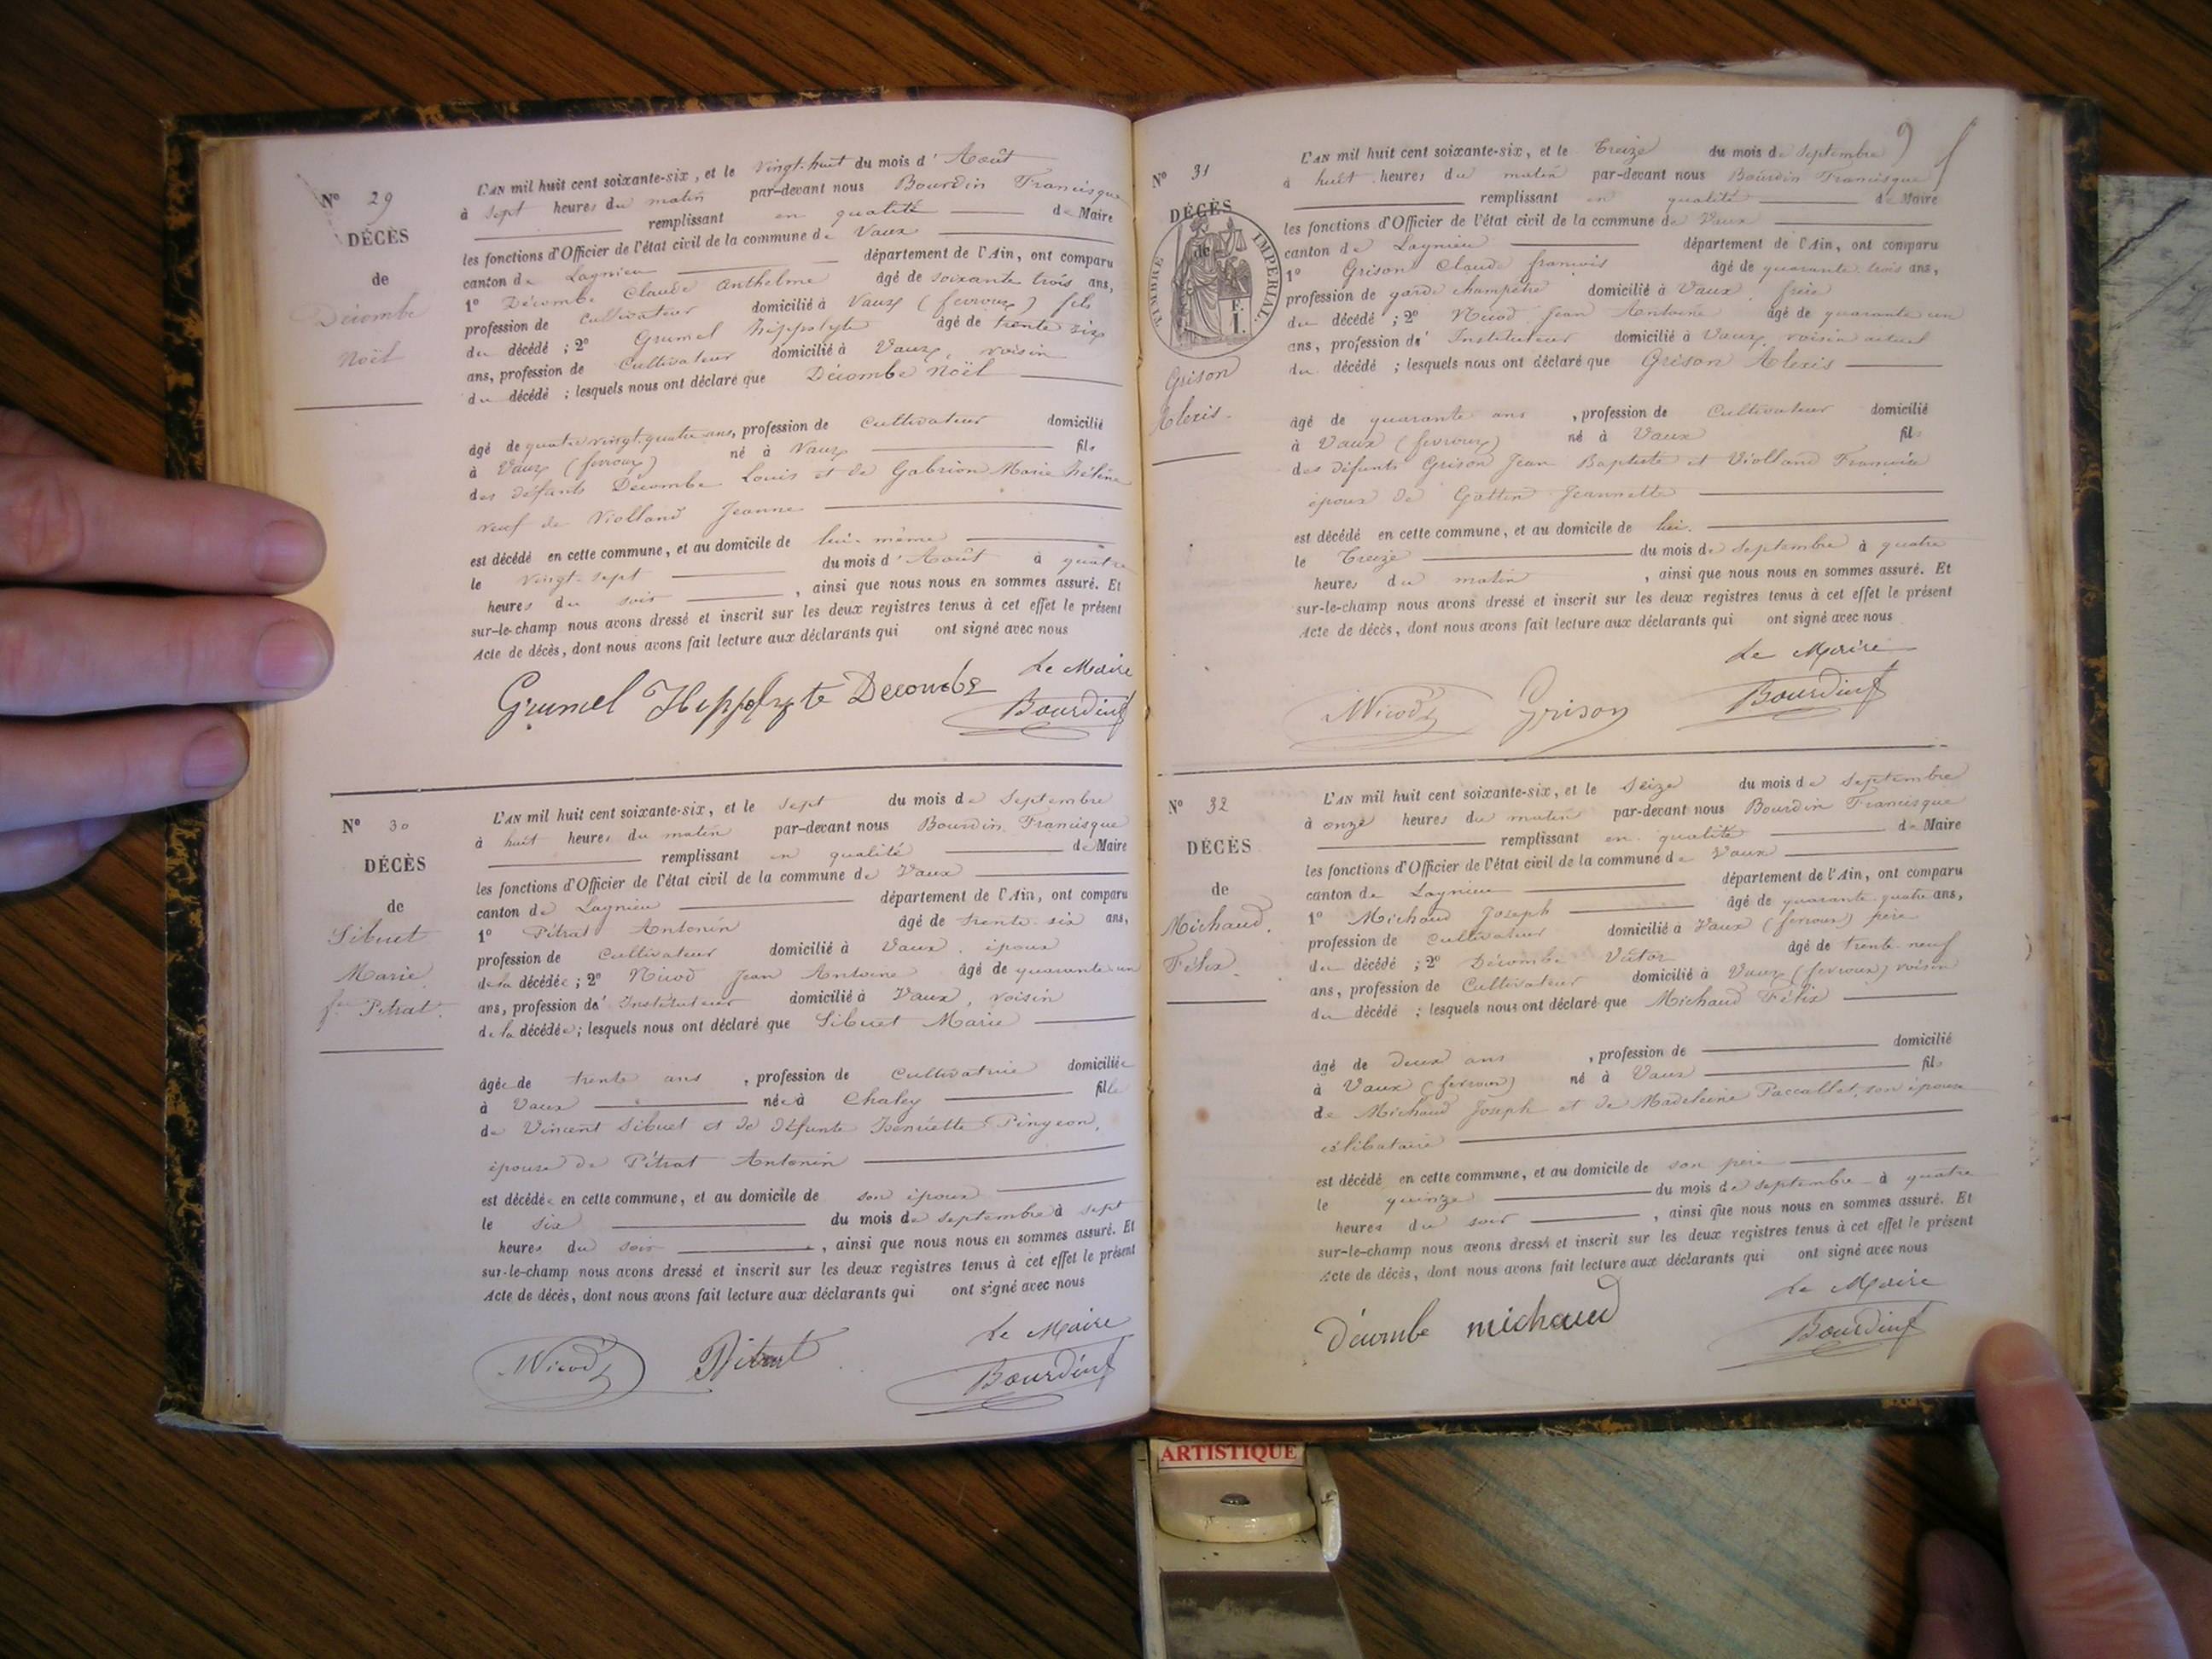 N° 29
DÉCÈS
de
Décombe
Noël
L'AN mil huit cent soixante-six, et le vingt-huit du mois d'Août
à sept heures du matin par-devant nous Bourdin Francisque
remplissant en qualité de Maire
les fonctions d'Officier de l'état civil de la commune de Vaux
canton de Lagnieu département de l'Ain, ont comparu
1° Décombe Claude Anthelme âgé de soixante trois ans,
profession de cultivateur domicilié à Vaux (fevroux) fils
du décédé ; 2° Grumel hippolyte âgé de trente six
ans, profession de Cultivateur domicilié à Vaux, voisin
du décédé ; lesquels nous ont déclaré que Décombe Noël
âgé de quatre vingt quatre ans, profession de Cultivateur domicilié
à Vaux (fevroux) né à Vaux fils
des défunts Décombe Louis et de Gabrion Marie hélène
veuf de Violland Jeanne
est décédé en cette commune, et au domicile de lui-même
le vingt-sept du mois d'Août à quatre
heures du soir , ainsi que nous nous en sommes assuré. Et
sur-le-champ nous avons dressé et inscrit sur les deux registres tenus à cet effet le présent
Acte de décès, dont nous avons fait lecture aux déclarants qui ont signé avec nous
Le Maire
Grumel Hippolyte Decombe Bourdin f
N° 30
DÉCÈS
de
Sibuet
Marie
fe Pétrat.
L'AN mil huit cent soixante-six, et le sept du mois de Septembre
à huit heures du matin par-devant nous Bourdin Francisque
remplissant en qualité de Maire
les fonctions d'Officier de l'état civil de la commune de Vaux
canton de Lagnieu département de l'Ain, ont comparu
1° Pétrat Antonin âgé de trente-six ans,
profession de Cultivateur domicilié à Vaux, époux
de la décédée ; 2° Nicod Jean Antoine âgé de quarante un
ans, profession d'Instituteur domicilié à Vaux, voisin
de la décédée ; lesquels nous ont déclaré que Sibuet Marie
âgée de trente ans , profession de Cultivatrice domiciliée
à Vaux née à Chaley fille
de Vincent Sibuet et de défunte Henriette Pingeon,
épouse de Pétrat Antonin
est décédée en cette commune, et au domicile de son époux
le six du mois de septembre à sept
heures du soir , ainsi que nous nous en sommes assuré. Et
sur-le-champ nous avons dressé et inscrit sur les deux registres tenus à cet effet le présent
Acte de décès, dont nous avons fait lecture aux déclarants qui ont signé avec nous
Le Maire
Nicod Pétrat Bourdin f
9
N° 31
DÉCÈS
de
TIMBRE IMPERIAL
Grison
Alexis.
L'AN mil huit cent soixante-six, et le treize du mois de Septembre
à huit heures du matin par-devant nous Bourdin Francisque
remplissant en qualité de Maire
les fonctions d'Officier de l'état civil de la commune de Vaux
canton de Lagnieu département de l'Ain, ont comparu
1° Grison Claude françois âgé de quarante trois ans,
profession de garde champêtre domicilié à Vaux, frère
du décédé ; 2° Nicod Jean Antoine âgé de quarante un
ans, profession d'Instituteur domicilié à Vaux, voisin actuel
du décédé ; lesquels nous ont déclaré que Grison Alexis
âgé de quarante ans , profession de Cultivateur domicilié
à Vaux (fevroux) né à Vaux fils
des défunts Grison Jean Baptiste et Violland Françoise
époux de Gattin Jeannette
est décédé en cette commune, et au domicile de lui.
le Treize du mois de septembre à quatre
heures du matin , ainsi que nous nous en sommes assuré. Et
sur-le-champ nous avons dressé et inscrit sur les deux registres tenus à cet effet le présent
Acte de décès, dont nous avons fait lecture aux déclarants qui ont signé avec nous
Le Maire
Nicod Grison Bourdin f
N° 32
DÉCÈS
de
Michaud.
Félix.
L'AN mil huit cent soixante-six, et le seize du mois de Septembre
à onze heures du matin par-devant nous Bourdin Francisque
remplissant en qualité de Maire
les fonctions d'Officier de l'état civil de la commune de Vaux
canton de Lagnieu département de l'Ain, ont comparu
1° Michaud Joseph âgé de quarante quatre ans,
profession de cultivateur domicilié à Vaux (fevroux) père
du décédé ; 2° Décombe Victor âgé de trente-neuf
ans, profession de Cultivateur domicilié à Vaux (fevroux) voisin
du décédé ; lesquels nous ont déclaré que Michaud Félix
âgé de deux ans , profession de domicilié
à Vaux (fevroux) né à Vaux fils
de Michaud Joseph et de Madeleine Paccallet, son épouse
célibataire
est décédé en cette commune, et au domicile de son père
le quinze du mois de septembre à quatre
heures du soir , ainsi que nous nous en sommes assuré. Et
sur-le-champ nous avons dressé et inscrit sur les deux registres tenus à cet effet le présent
Acte de décès, dont nous avons fait lecture aux déclarants qui ont signé avec nous
Le Maire
Décombe michaud Bourdin f
ARTISTIQUE